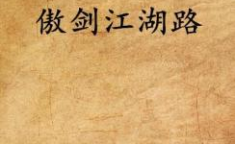 傲剑江湖路